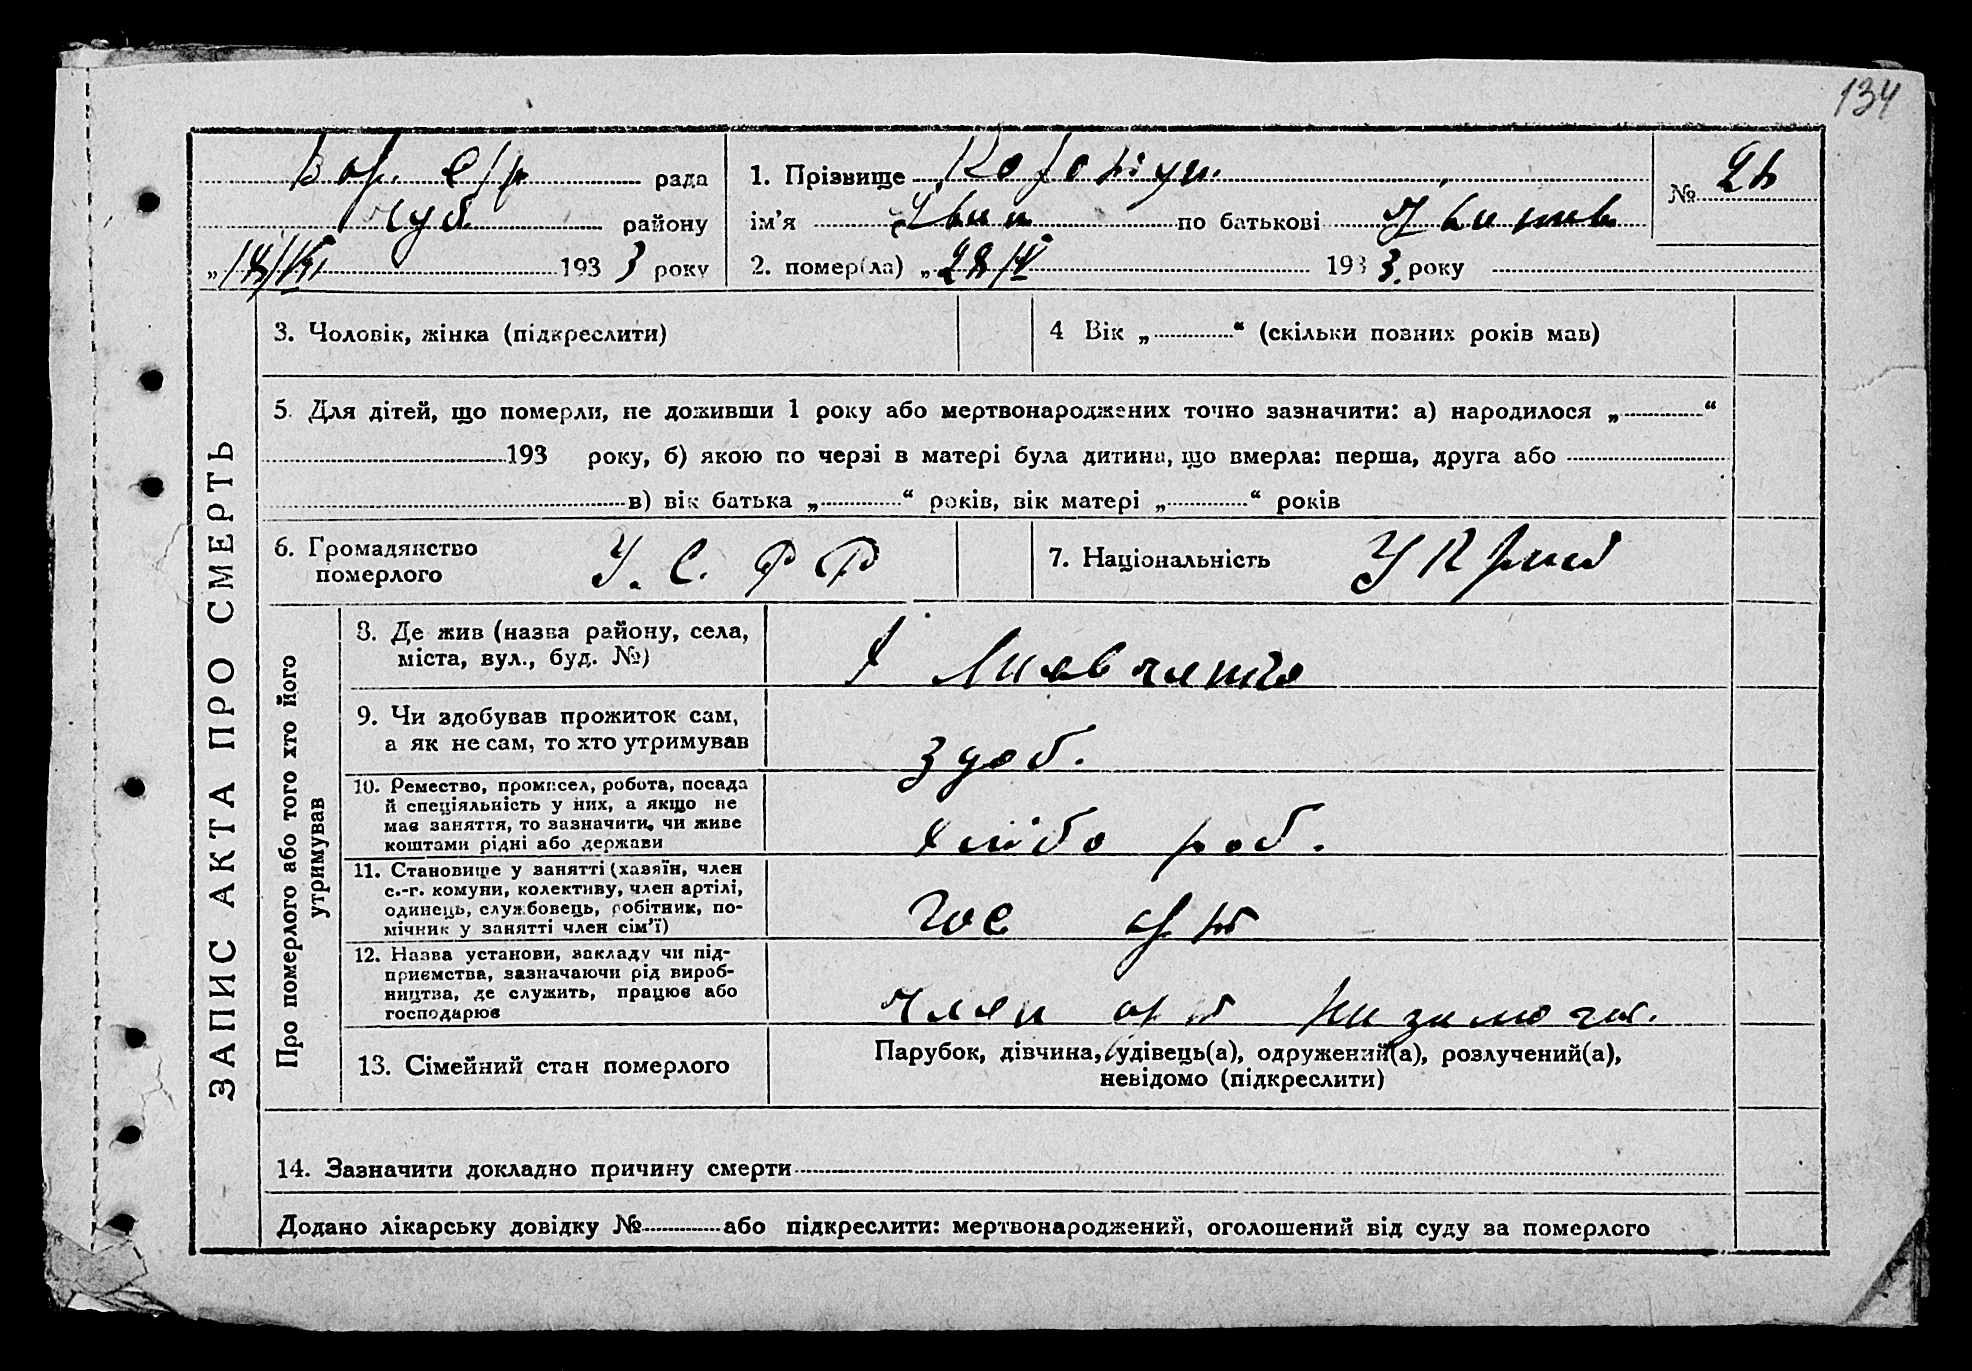 134
Вор. с/р рада
Чуб. району
„14/VI 1933 року
1. Прізвище
ім’я Іван по батькові
2. помер(ла) „28/V 1933 року
№ 26
ЗАПИС АКТА ПРО СМЕРТЬ
3. Чоловік, жінка (підкреслити)
4 Вік „ “ (скільки повних років мав)
5. Для дітей, що померли, не доживши 1 року або мертвонароджених точно зазначити: а) народилося „ “
193 року, б) якою по черзі в матері була дитина, що вмерла: перша, друга або
в) вік батька „ “ років, вік матері „ “ років
6. Громадянство
померлого
У. С. Р Р
7. Національність
Про померлого або того хто його
утримував
8. Де жив (назва району, села,
міста, вул., буд. №)
9. Чи здобував прожиток сам,
а як не сам, то хто утримував
здоб.
10. Ремество, промисел, робота, посада
й спеціяльність у них, а якщо не
має заняття, то зазначити, чи живе
коштами рідні або держави
хлібо роб.
11. Становище у занятті (хазяїн, член
с.-г. комуни, колективу, член артілі,
одинець, службовець, робітник, по-
мічник у занятті член сім’ї)
арт
12. Назва установи, закладу чи під-
приємства, зазначаючи рід вироб-
ництва, де служить, працює або
господарює
член арт
13. Сімейний стан померлого
Парубок, дівчина, удівець(а), одружений(а), розлучений(а),
невідомо (підкреслити)
14. Зазначити докладно причину смерти
Додано лікарську довідку № або підкреслити: мертвонароджений, оголошений від суду за померлого